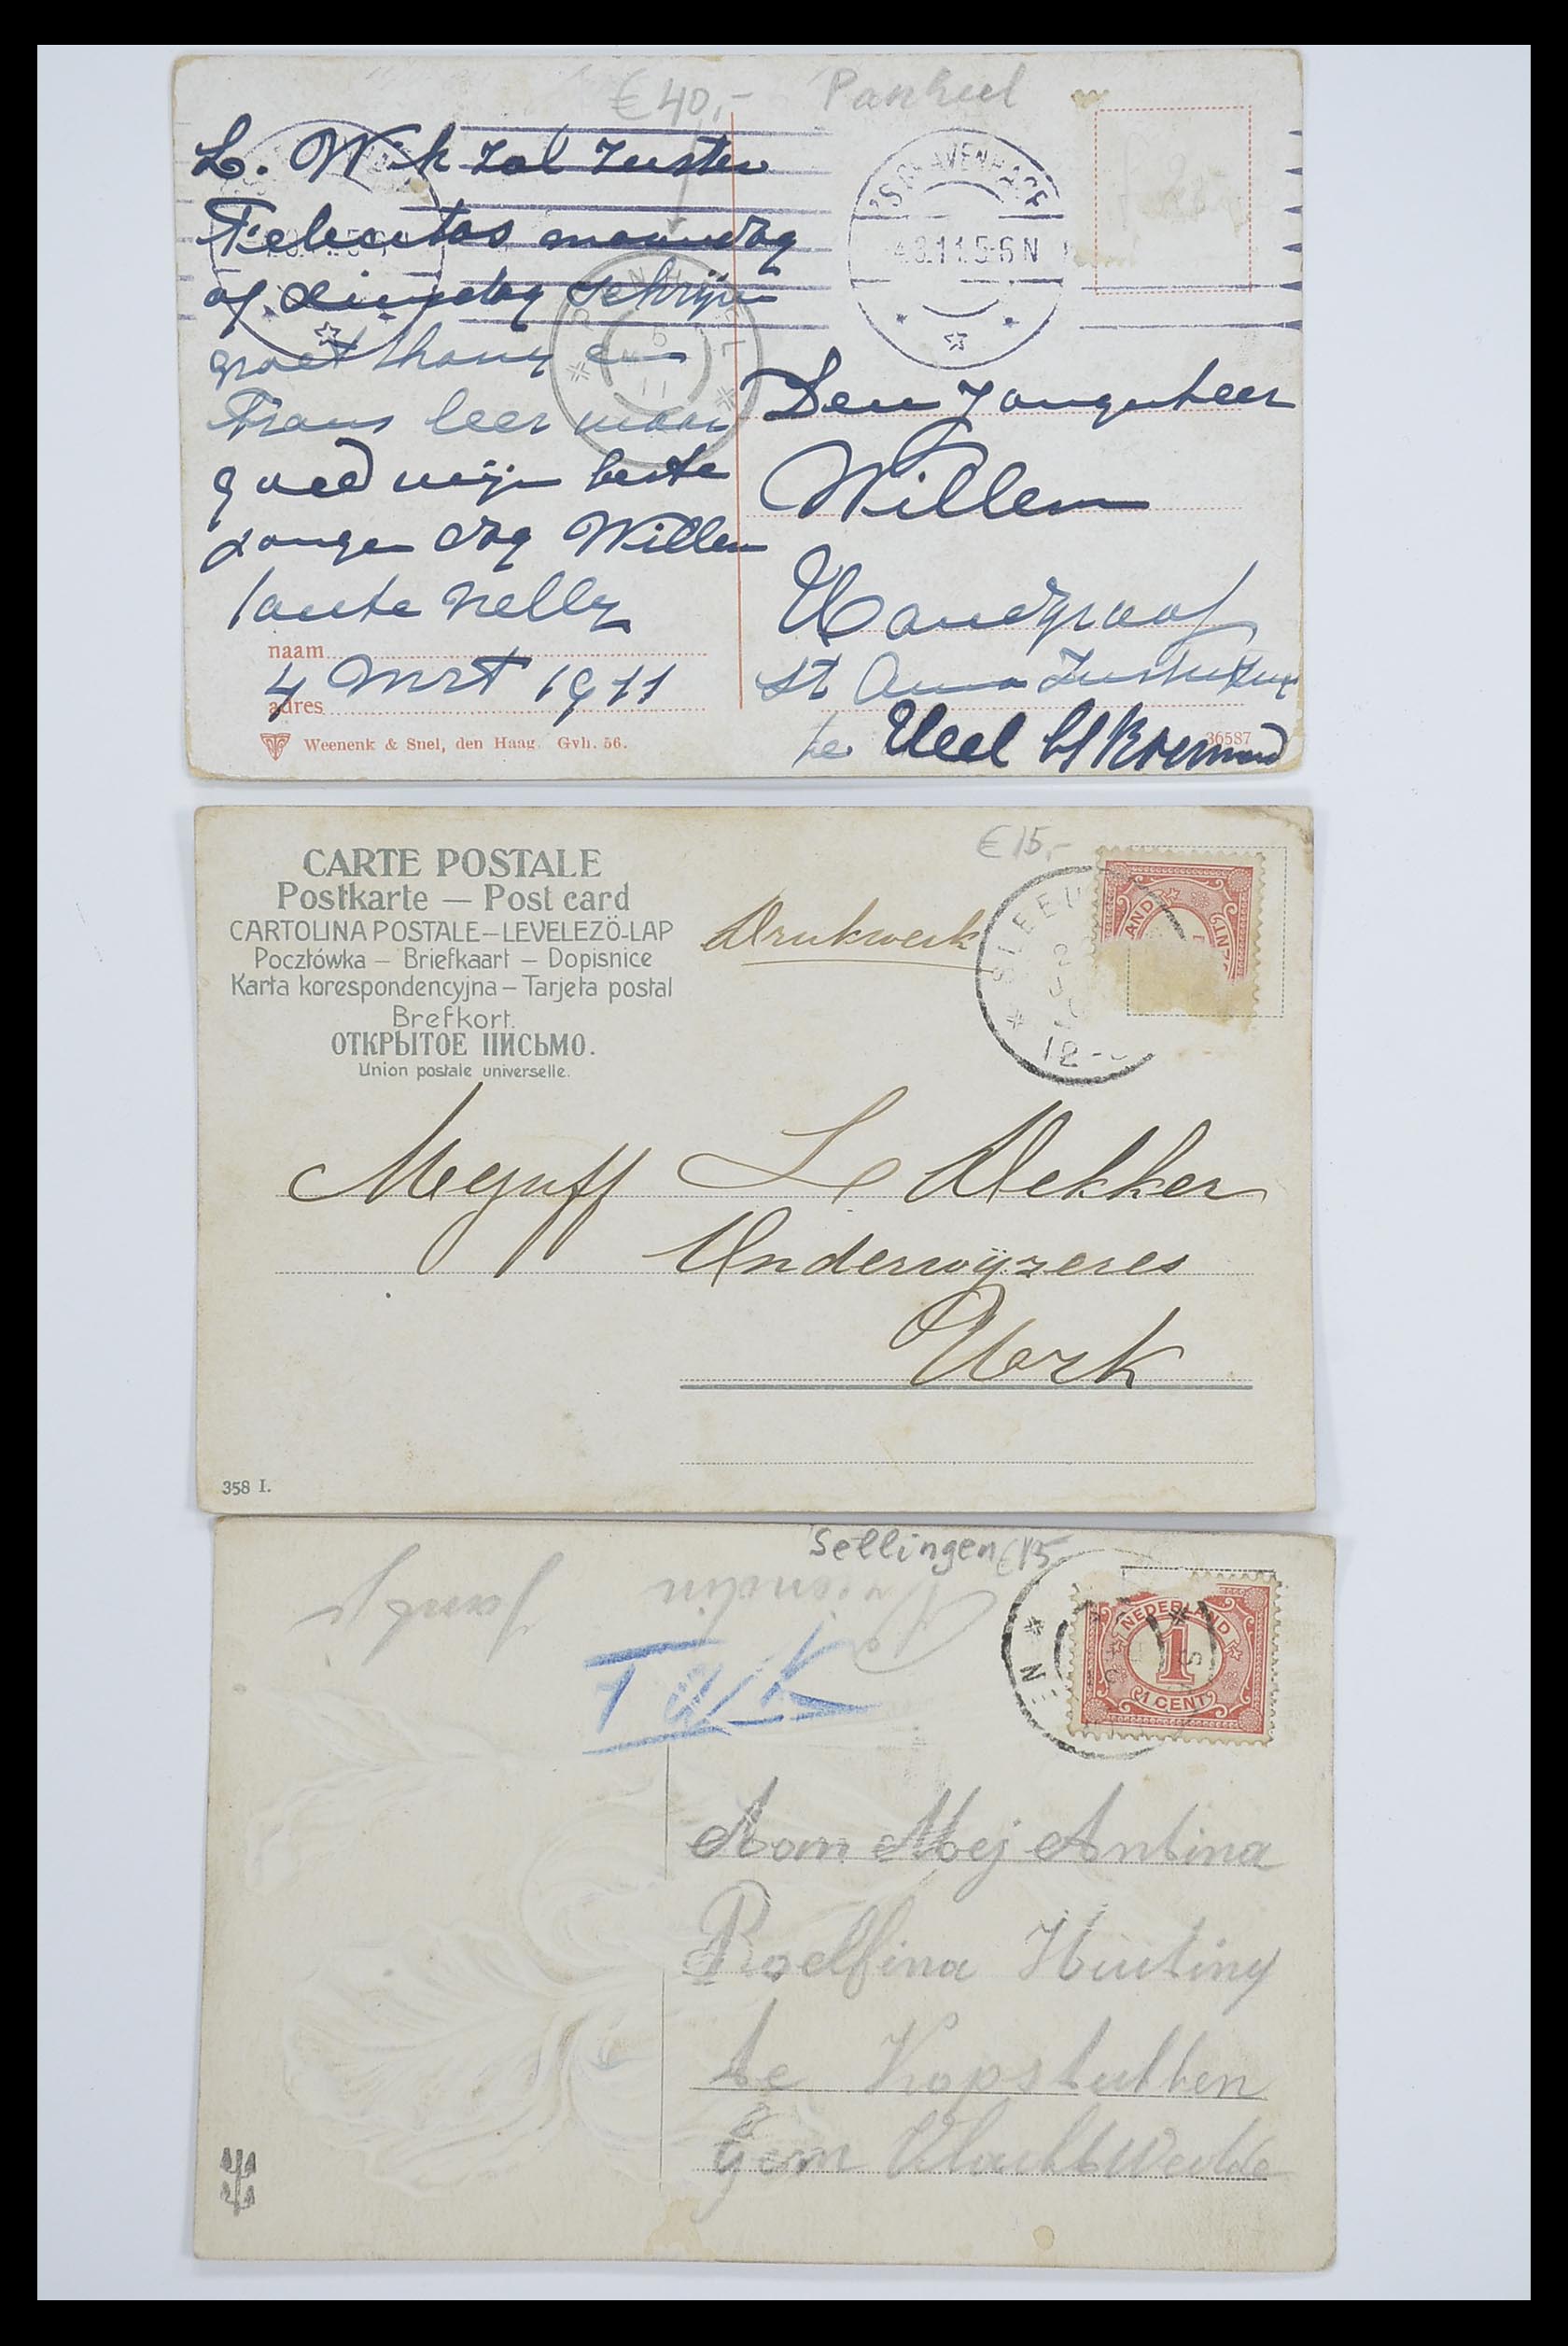 €40,- Panheel
L. W ik zal zuster
Felicitas maandag
of dingsdag schrijven
groet Thony en
Frans leer maar
goed mijn beste
jongen dag Willem
tante Nelly
naam
4 Mrt 1911
adres
Weenenk & Snel, den Haag. Gvh. 56.
'S GRAVENHAGE
4.3.11.5-6 N
Den Jongenheer
Willem
Handgraaf
St Anna
te Heel b/
36587
€15,-
CARTE POSTALE
Postkarte — Post card
CARTOLINA POSTALE — LEVELEZÖ-LAP
Pocztówka — Briefkaart — Dopisnice
Karta korespondencyjna — Tarjeta postal
Brefkort.
ОТКРЫТОЕ ПИСЬМО.
Union postale universelle.
Drukwerk
SLEEU
12-
Mejuff L Dekker
Onderwijzeres
Urk
358 I.
Sellingen €15
Jantje
NEDERLAND
1
1 CENT
EN
Aan Mej Antina
Roelfina Huiting
te Kopstukken
Gem Vlachtwedde